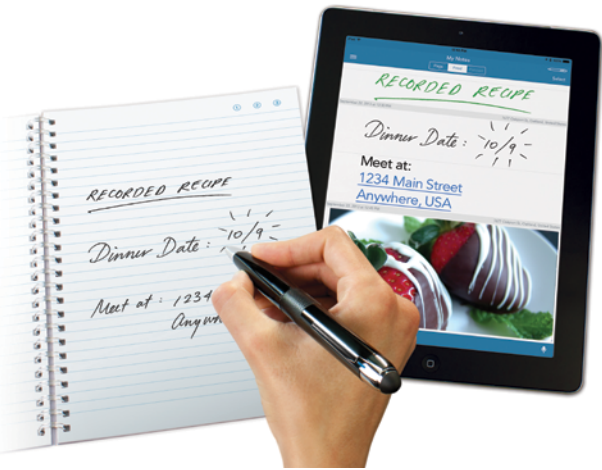 RECORDED RECIPE
Dinner Date: 10/9
Meet at: 1234
My Notes
RECORDED RECIPE
Dinner Date: 10/9
Meet at:
1234 Main Street
Anywhere, USA